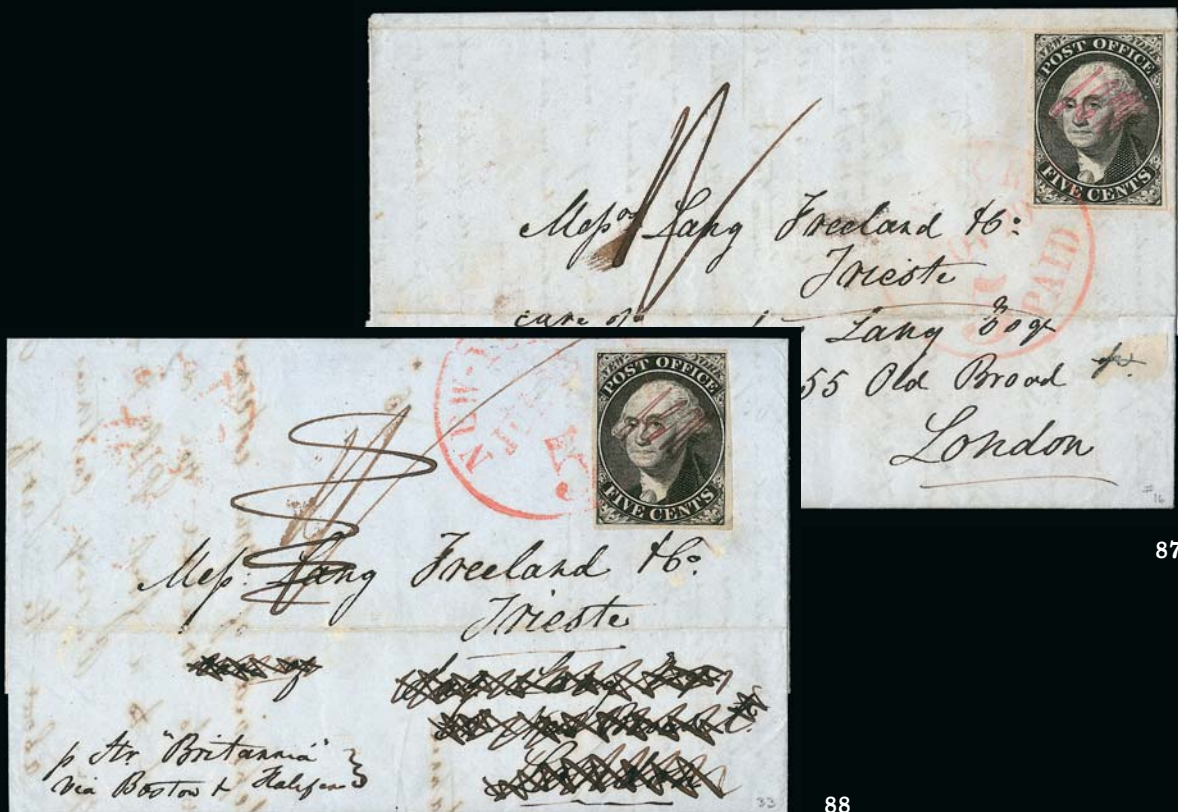 POST OFFICE
FIVE CENTS
Mess^rs Lang Freeland & Co:
Trieste
PAID
5
care of
Lang Esqr
55 Old Broad
London
16
87
NEW-YO
5
POST OFFICE
FIVE CENTS
Mess. Lang Freeland & Co.
Trieste
p Str "Britannia"
via Boston & Halifax
33
88